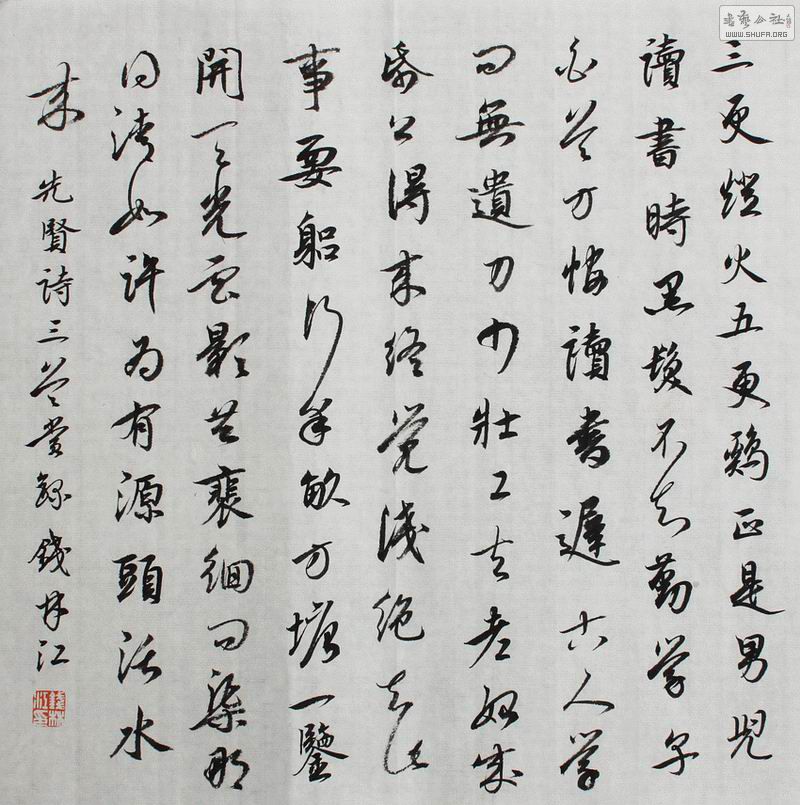 書藝公社
WWW.SHUFA.ORG
三更燈火五更鷄正是男兒
讀書時黑髮不知勤學早
白首方悔讀書遲古人學
問無遺力少壯工夫老始成
紙上得來終覺淺絕知此
事要躳行半畝方塘一鑒
開天光雲影共裴徊問渠那
得清如許為有源頭活水
來 先賢詩三首錄錢林江